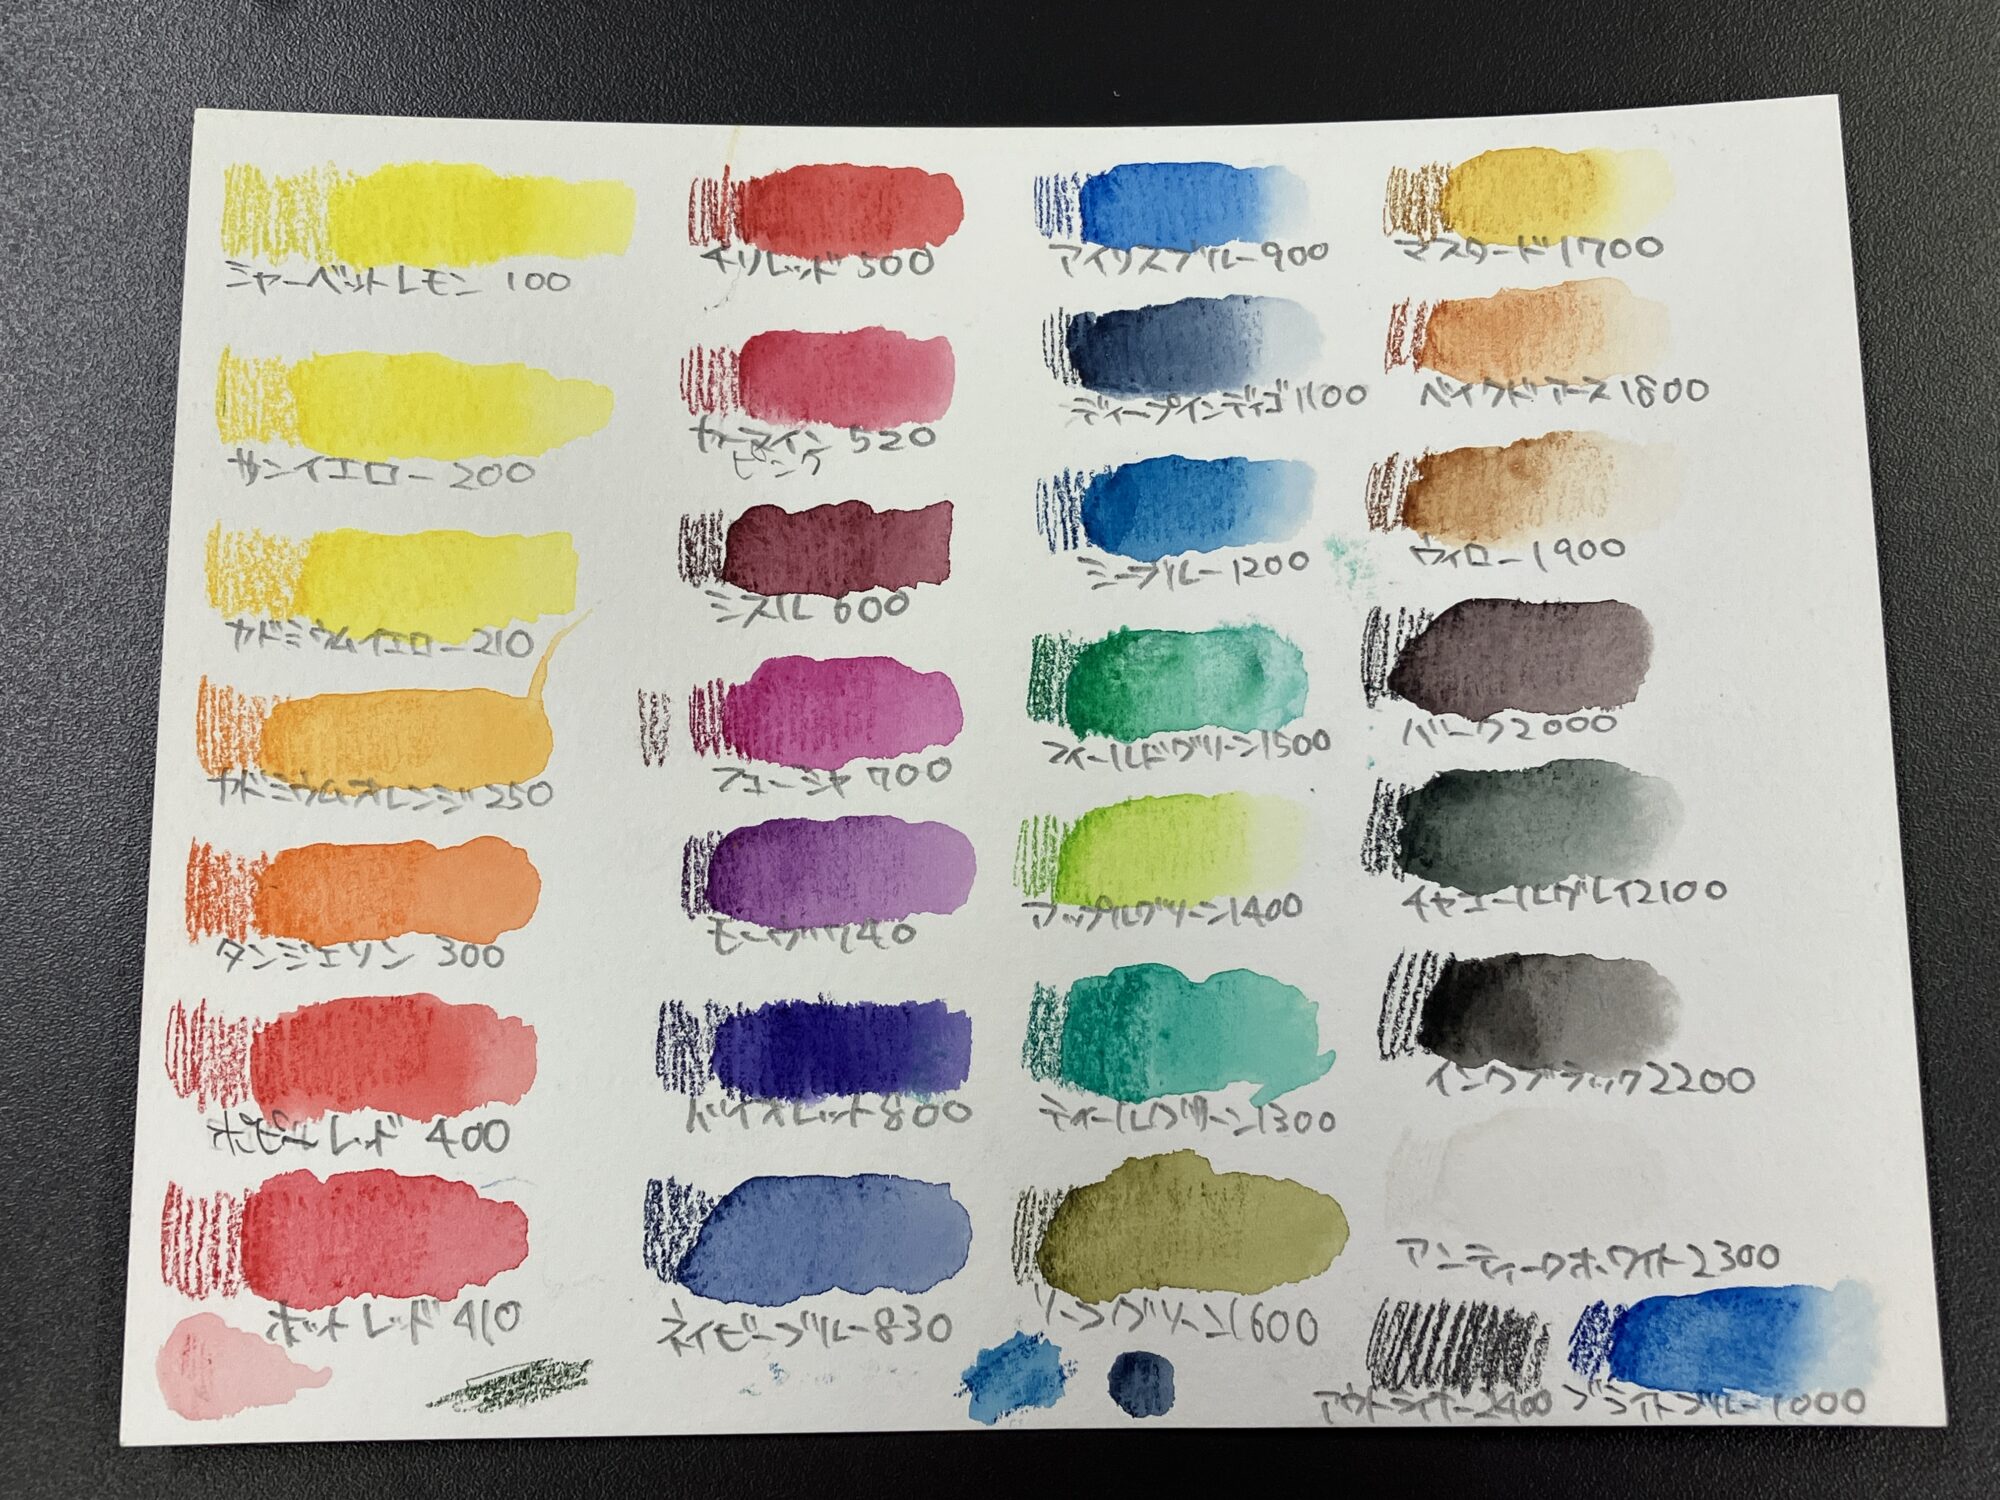 シャーベットレモン 100
サンイエロー 200
カドミウムイエロー 210
カドミウムオレンジ 250
タンジェリン 300
ポピーレッド 400
ホットレッド 410
チリレッド 500
カーマイン 520
ピンク
ミスル 600
フューシャ 700
モーヴ 740
バイオレット 800
ネイビーブルー 830
アイリスブルー 900
ディープインディゴ 1100
シーブルー 1200
フィールドグリーン 1500
アップルグリーン 1400
ティールグリーン 1300
リーフグリーン 1600
マスタード 1700
ベイクドアース 1800
ウィロー 1900
バーク 2000
チャコールグレイ 2100
インクブラック 2200
アンティークホワイト 2300
アウトライナー 2400
ブライトブルー 1000